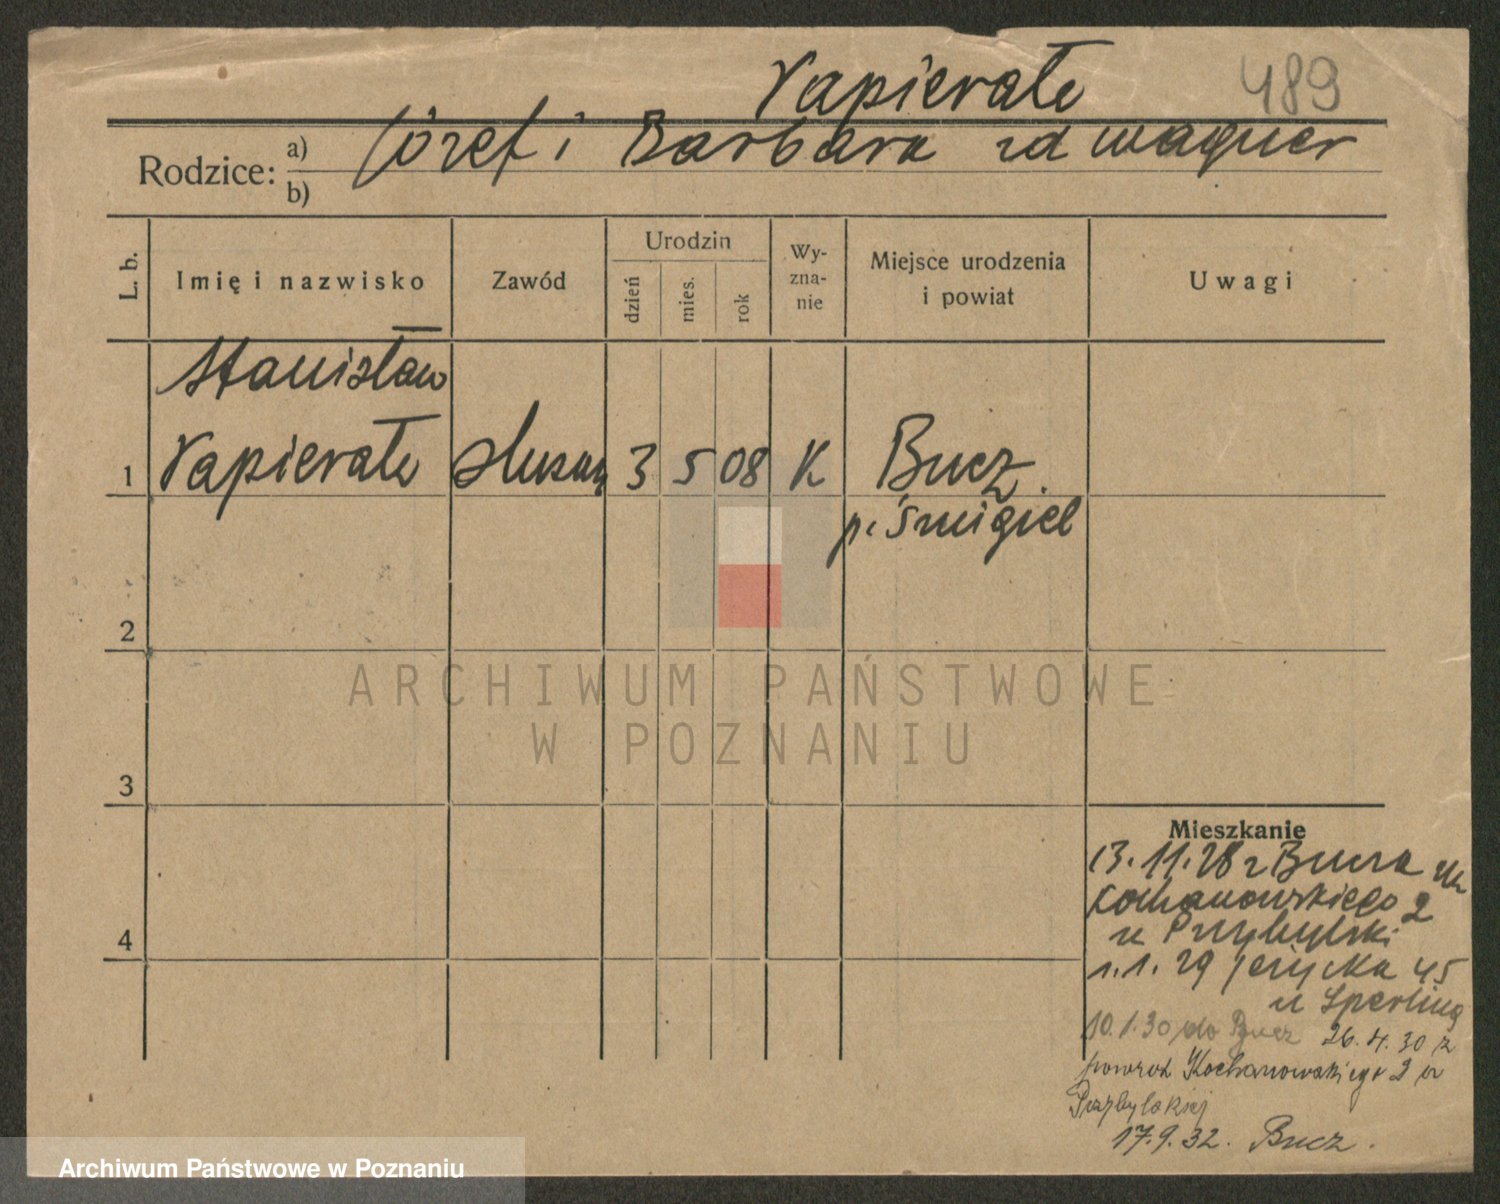 Papierała 489
Rodzice: a) Józef i Barbara zd wagner
b)
L. b.
Imię i nazwisko
Zawód
Urodzin
dzień
mies.
rok
Wy-
zna-
nie
Miejsce urodzenia
i powiat
Uwagi
Stanisław
1 Papierała ślusarz 3 5 08 K Bucz
p. Śmigiel
2
ARCHIWUM PAŃSTWOWE
W POZNANIU
3
Mieszkanie
13.11.28 z Bucza
Kochanowskiego 2
4 u Przybylski
1.1.29 Jeżycka 45
u Sperling
10.1.30 do Bucz 26.4.30 z
powrot Kochanowskiego 2 u
Przybylskiej
17.9.32. Bucz.
Archiwum Państwowe w Poznaniu